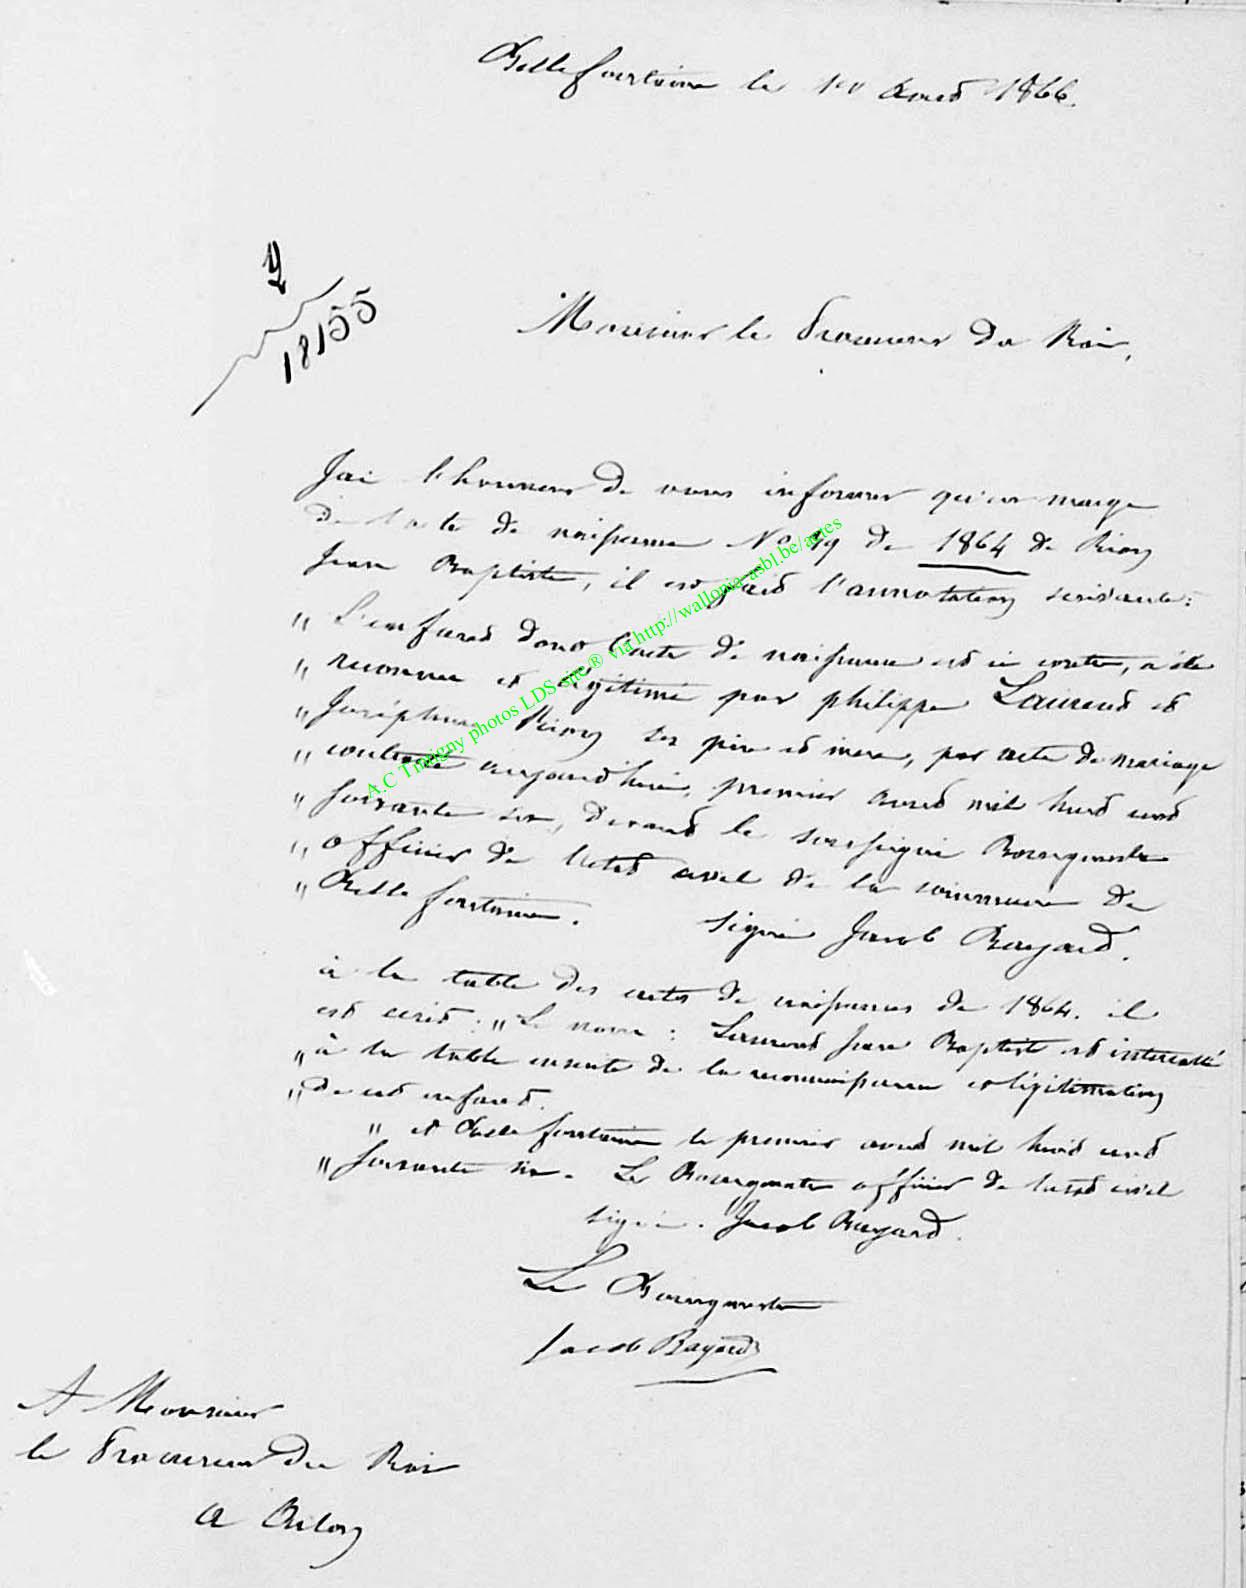 Bellefontaine le 1er Aout 1866.
18155
Monsieur le Procureur du Roi,
J'ai l'honneur de vous informer qu'en marge
de l'acte de naissance No 19 de 1864 de Rion
Jean Baptiste, il est fait l'annotation suivante:
" L'enfant dont l'acte de naissance est ci contre, a été
" reconnu et légitimé par philippe Laurent et
" Joséphine Rion ses père et mère, par acte de mariage
" contracté aujourd'hui, premier aout mil huit cent
" soixante six, devant le soussigné Bourgmestre
" officier de l'etat civil de la commune de
" Bellefontaine. signé Jacob Bayard.
à la table des actes de naissances de 1864. il
est écrit: " Le nom: Laurent Jean Baptiste est intercallé
" à la table ensuite de la reconnaissance et légitimation
" de cet enfant.
" à Bellefontaine le premier aout mil huit cent
" soixante six. Le Bourgmestre officier de l'etat civil
signé. Jacob Bayard.
Le Bourgmestre
Jacob Bayard
A Monsieur
le Procureur du Roi
a Arlon
A.C Tintigny photos LDS site ® via http://wallonia-asbl.be/actes